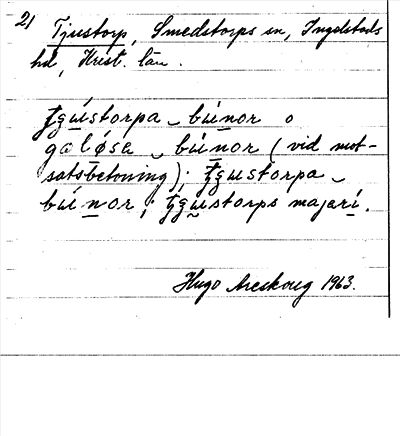 21 Tjustorp, Smedstorps sn, Ingelstads
hd, Krist. län.
ƫgu̲ストorpa ‿ búnor o
galǿsa ‿ bún̲or (vid mot-
satsbetoning); ƫgustorpa ‿
bún̲or; ƫgustorps majarí̲.
Hugo Areskoug 1963.